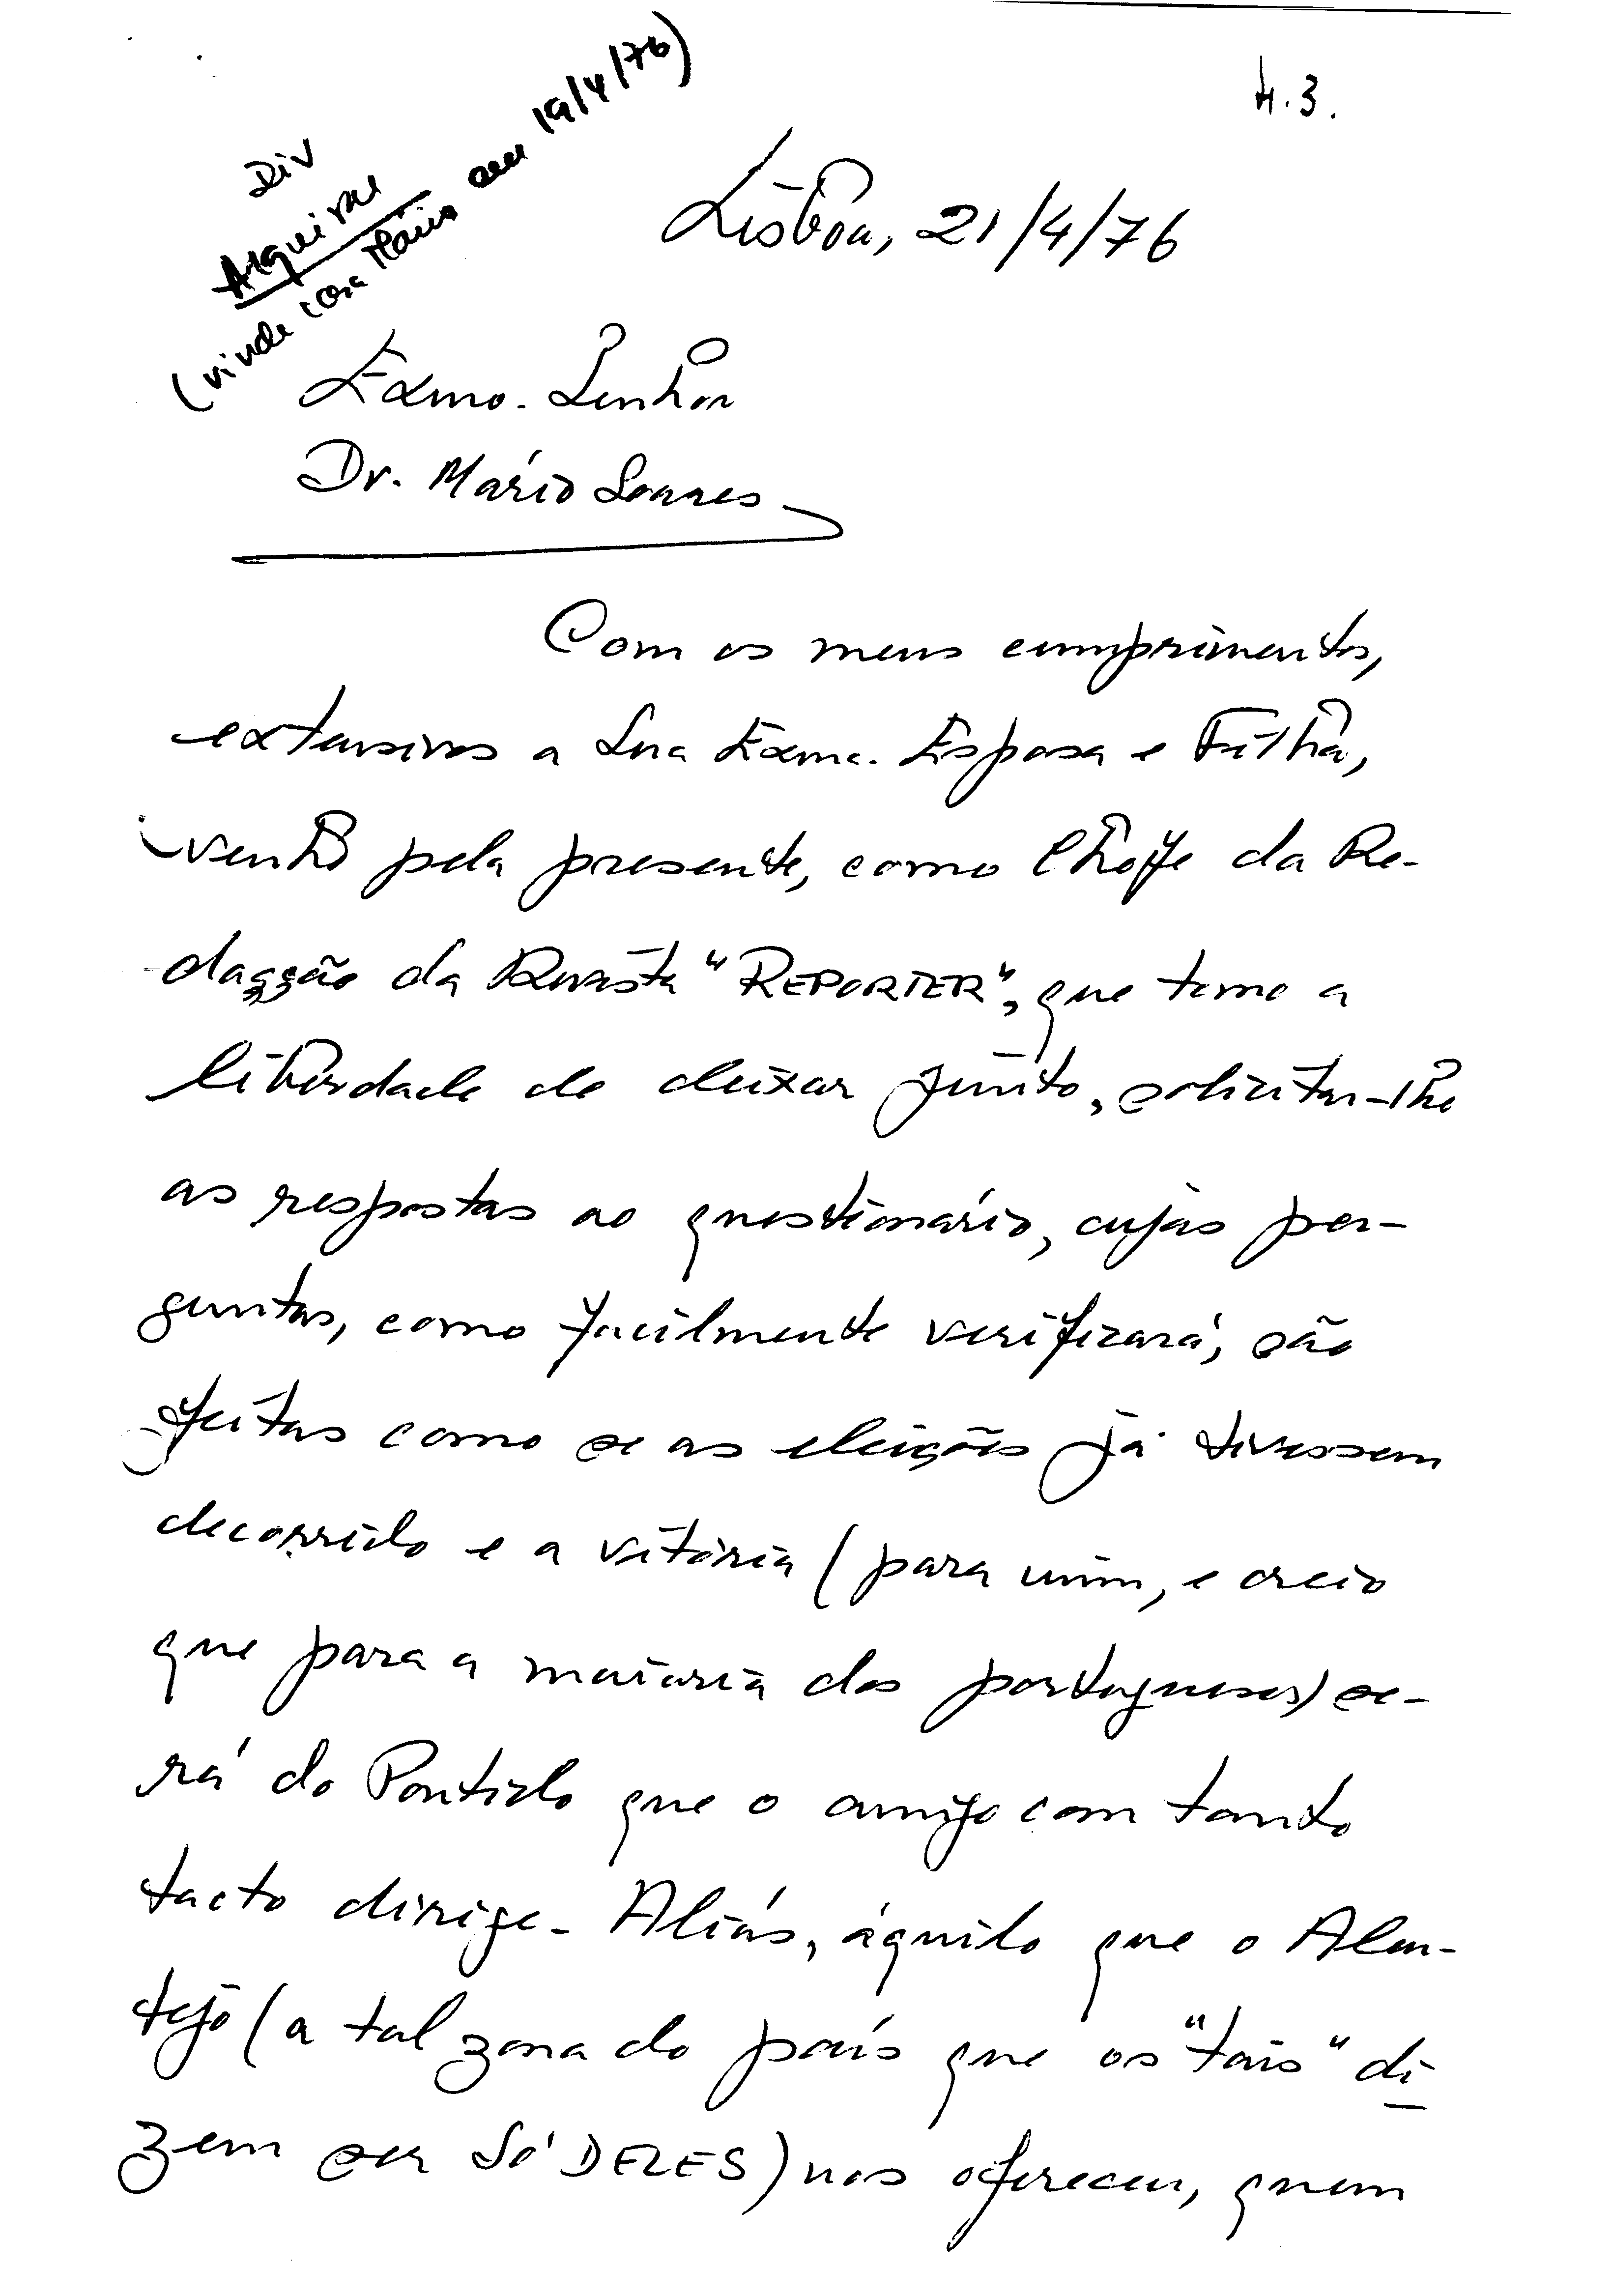 H.3.
Div
Arquivar
(vinda casa Mário em 19/4/76)
Lisboa, 21/4/76
Exmo. Senhor
Dr. Mário Soares
Com os meus cumprimentos,
extensivos a Sua Exma. Esposa e Filha,
venho pela presente, como Chefe da Re-
dacção da Revista "REPORTER", que tomo a
liberdade de deixar junto, solicitar-lhe
as respostas ao questionário, cujas per-
guntas, como facilmente verificará, são
feitas como se as eleições já tivessem
decorrido e a vitória (para mim, e creio
que para a maioria dos portugueses) se-
rá do Partido que o amigo com tanto
tacto dirige. Aliás, àquilo que o Alen-
tejo (a tal zona do país que os "tais" di
zem ser Só DELES) nos ofereceu, quem